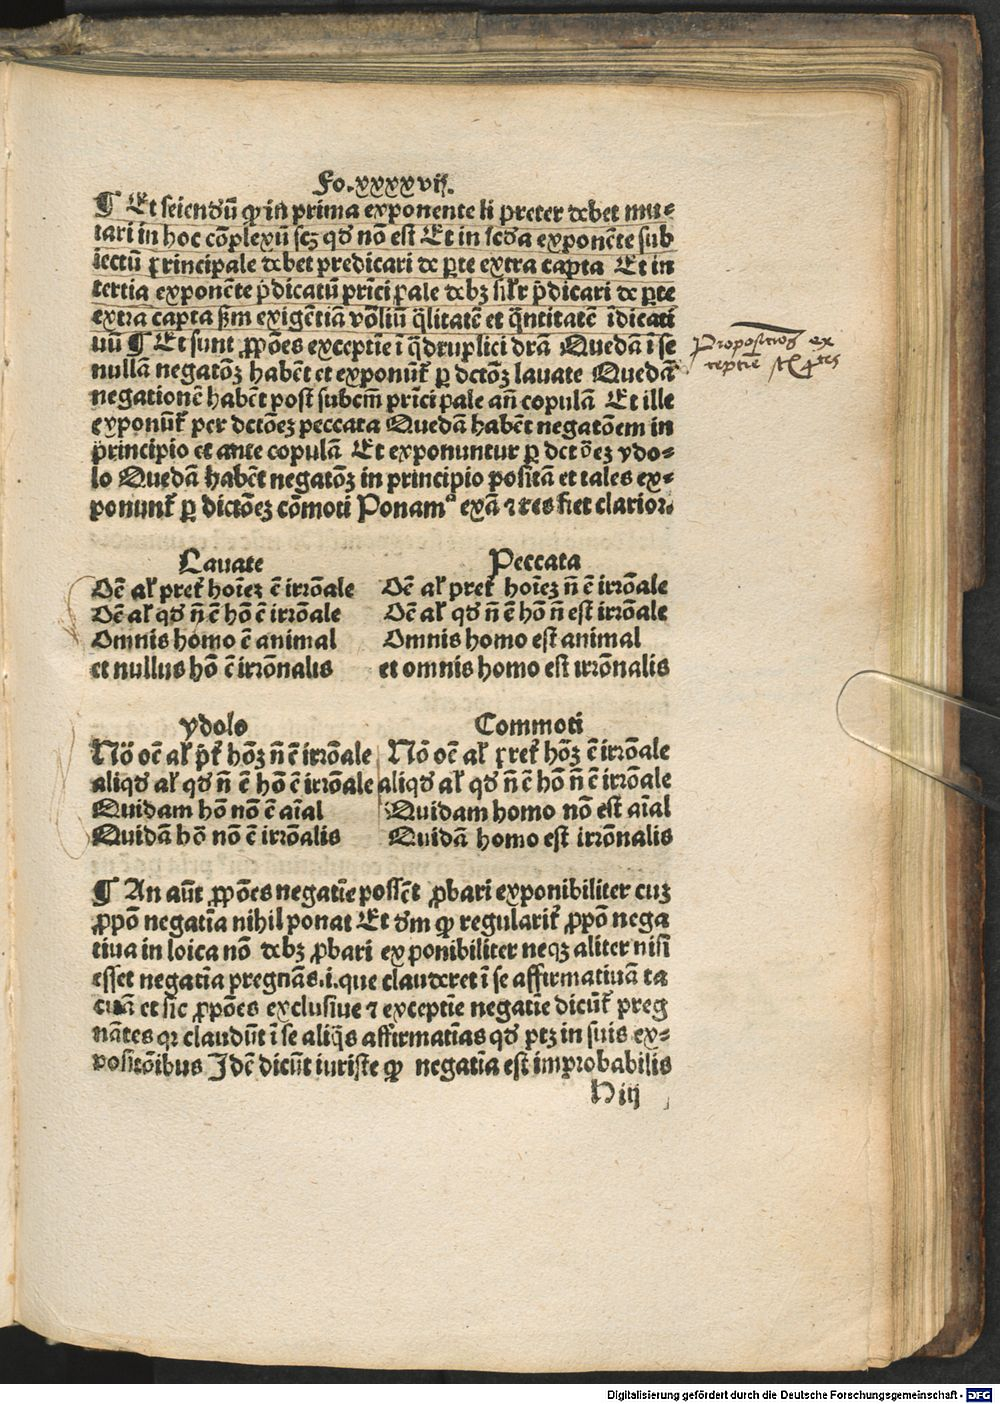 Fo.xxxxvij.
¶ Et sciendū ꝙ in prima exponente li preter debet mu⸗
tari in hoc cōplexū scꝫ qđ nō est Et in scđa exponēte sub
iectū principale debet predicari de ꝑte extra capta Et in
tertia exponēte p̄dicatū prīcipale debꝫ silr p̄dicari de ꝑte
extra capta ẜm exigētiā vōliū q̄litatē et q̄ntitatē īdicati
uū ¶ Et sunt ꝓpōes exceptīe ī q̄druplici drā Quedā ī se
nullā negatōꝫ habēt et exponūt̄ ꝑ dctōꝫ lauate Quedā
negationē habēt post subcm̄ prīcipale añ copulā Et ille
exponūt̄ per dctōeꝫ peccata Quedā habēt negatōem in
principio et ante copulā Et exponuntur ꝑ dctōeꝫ ydo⸗
lo Quedā habēt negatōꝫ in principio positā et tales ex⸗
ponunt̄ ꝑ dictōeꝫ cōmoti Ponamꝰ exā ⁊ res fiet clarior.
Propositiōes ex
ceptīe
Lauate
Oē al̄ pret̄ hoīeꝫ ē irrōale
Oē al̄ qđ ñ ē hō ē irrōale
Omnis homo ē animal
et nullus hō ē irrōnalis
Peccata
Oē al̄ pret̄ hoīeꝫ ñ ē irrōale
Oē al̄ qđ ñ ē hō ñ est irrōale
Omnis homo est animal
et omnis homo est irrōnalis
ydolo
Nō oē al̄ p̄t̄ hōꝫ ñ ē irrōale
aliqđ al̄ qđ ñ ē hō ē irrōale
Quidam hō nō ē aīal
Quidā hō nō ē irrōalis
Commoti
Nō oē al̄ pret̄ hōꝫ ē irrōale
aliqđ al̄ qđ ñ ē hō ñ ē irrōale
Quidam homo nō est aīal
Quidā homo est irrōnalis
¶ An aūt ꝓpōes negatīe possēt ꝓbari exponibiliter cuꝫ
ꝓpō negatīa nihil ponat Et đm ꝙ regularit̄ ꝓpō nega
tiua in loica nō debꝫ ꝓbari exponibiliter neqꝫ aliter nisi
esset negatīa pregnās.i.que clauderet ī se affirmatiuā ta
citā et sic ꝓpōes exclusiue ⁊ exceptīe negatīe dicūt̄ preg
nātes qꝛ claudūt ī se aliq̄s affirmatīas qđ ptꝫ in suis ex⸗
positōibus Idē dicūt iuriste ꝙ negatīa est improbabilis
H iij
Digitalisierung gefördert durch die Deutsche Forschungsgemeinschaft - DFG